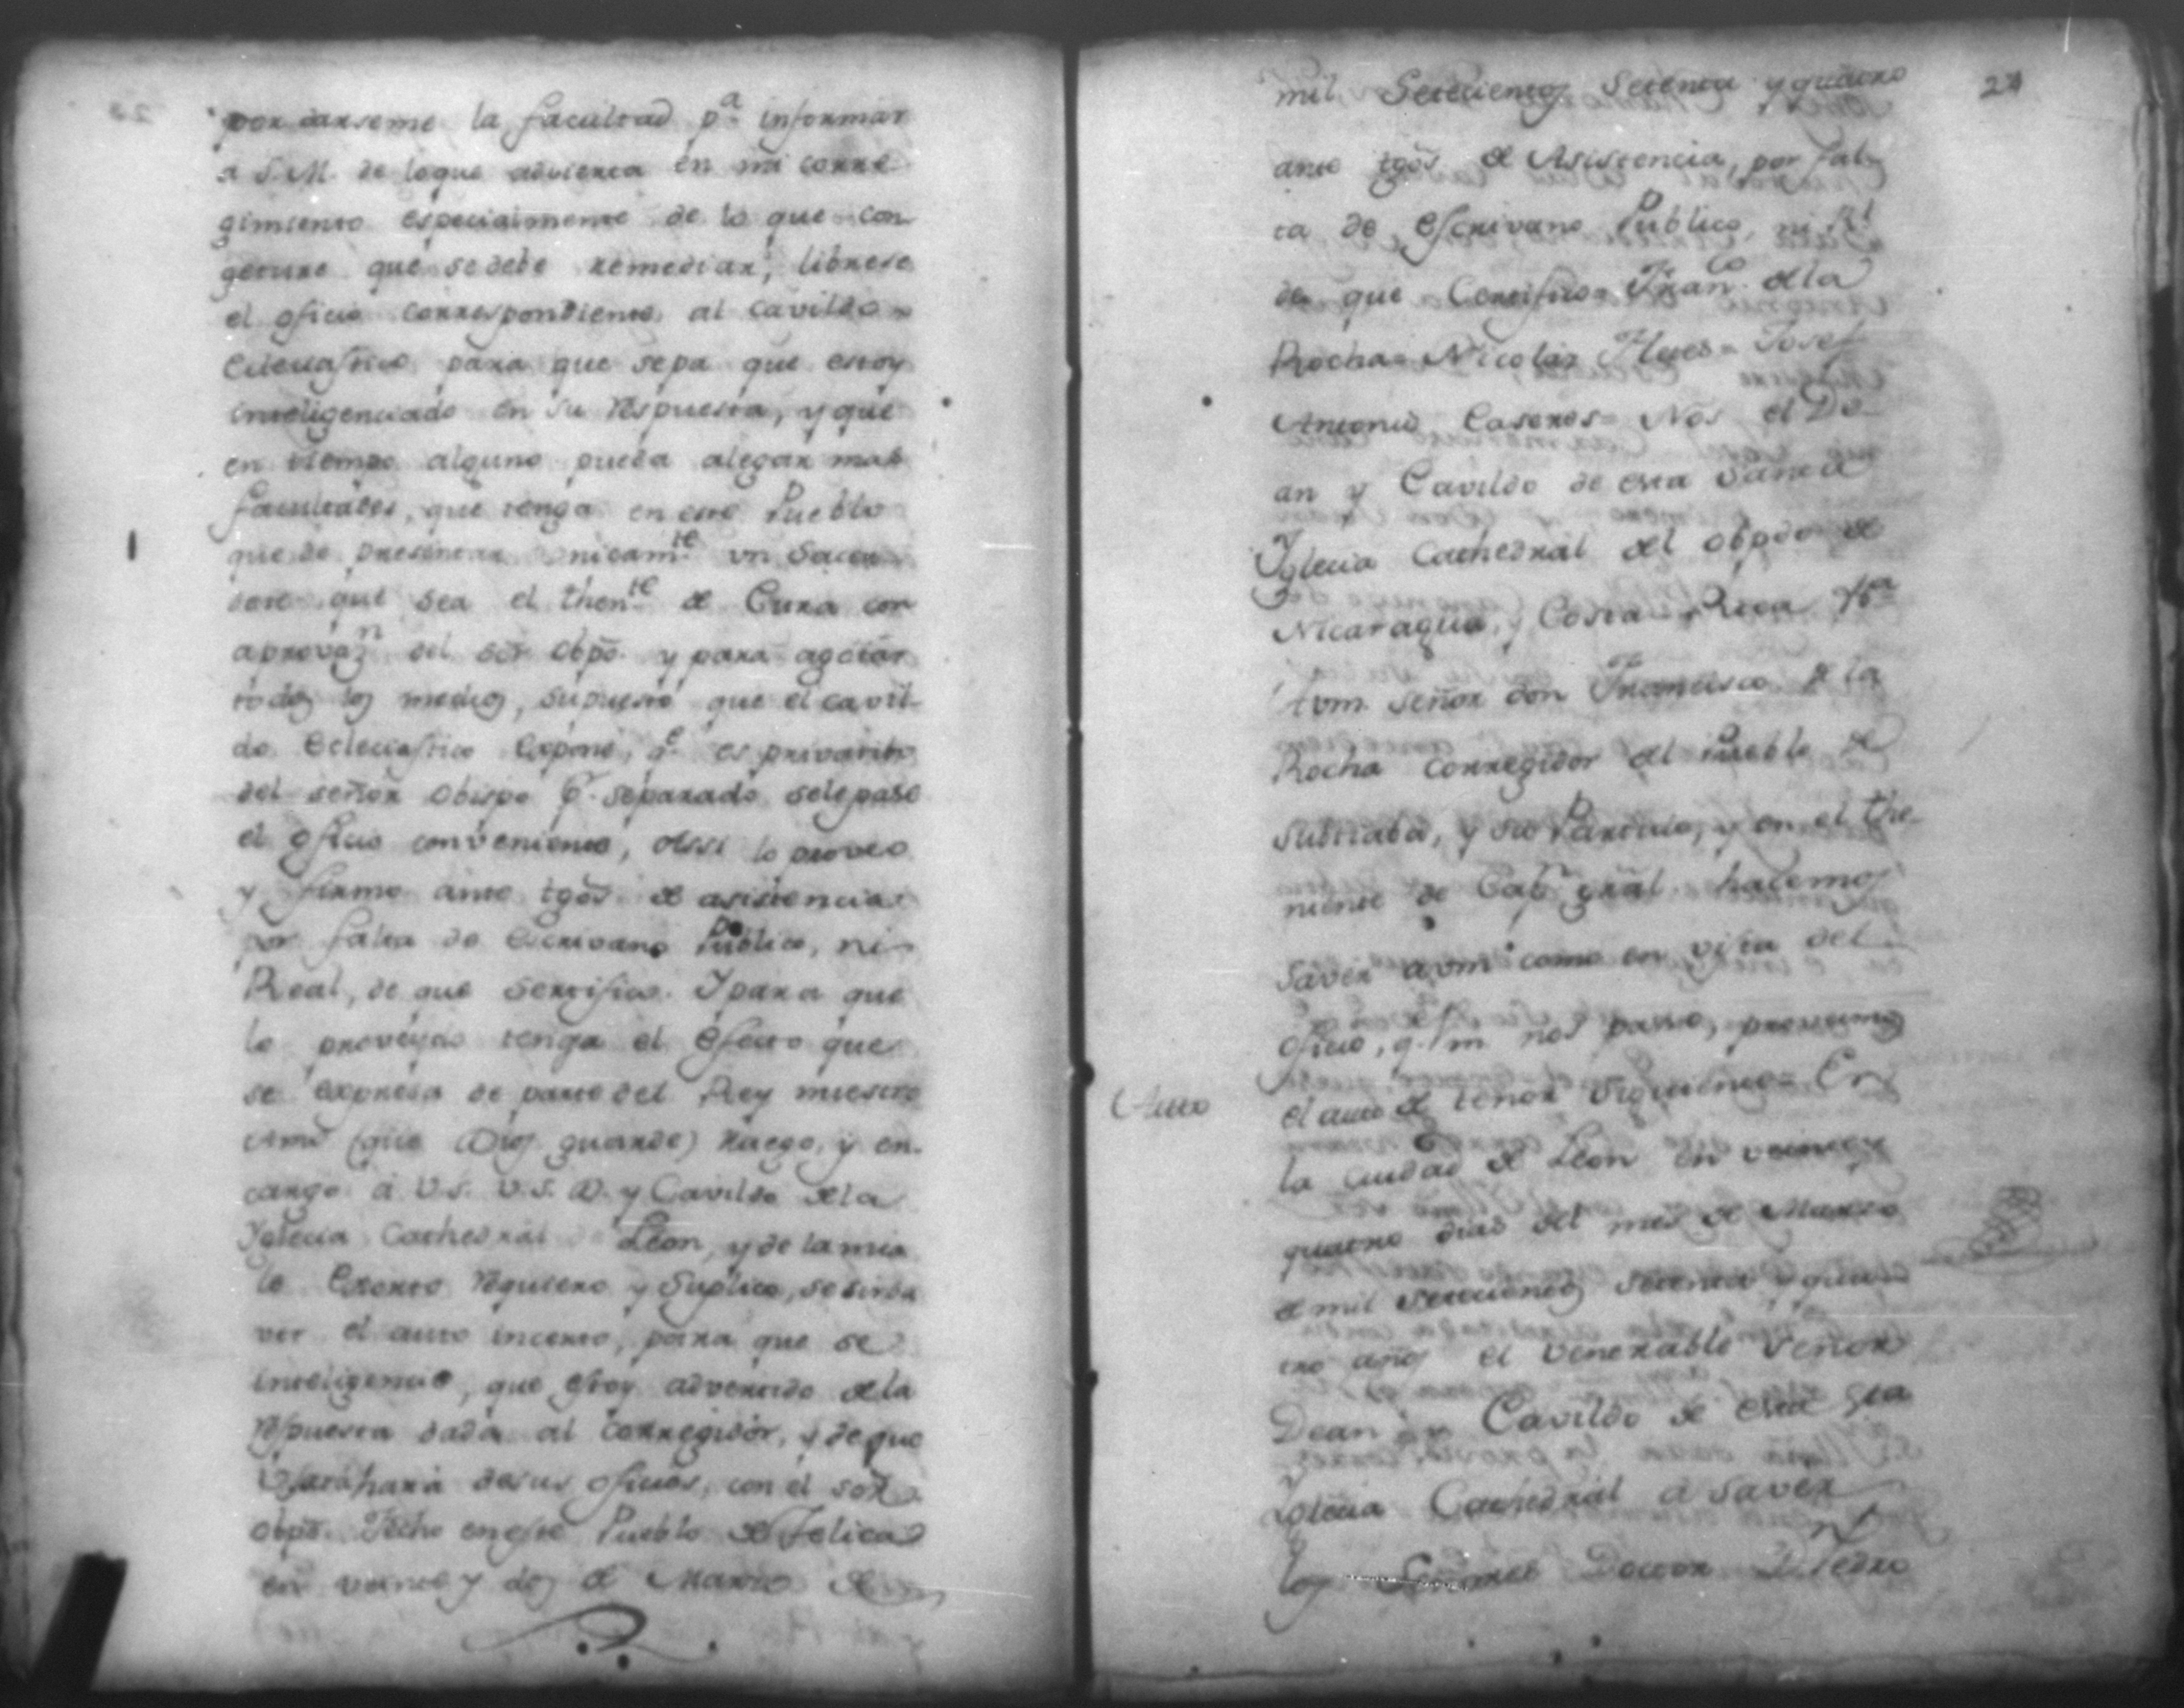 por darseme la facultad pa. informar
a S.M. de loque advierta en mi corre
gimiento especialmente de lo que con
geture que sedebe remediar, librese
el oficio correspondiente al cavildo
Eclesiastico para que sepa que estoy
inteligenciado en su respuesta, y que
en tiempo alguno pueda alegar mas
facultades, que tenga en este Pueblo
que de presentar unicamte. un Sacer
dote que sea el thente. de Cura con
aprovazn. del sor. obpo. y para agotar
todos los medios, supuesto que el cavil-
do Eclesiastico expone, qe. es privativo
del señor Obispo pr. separado selepase
el oficio conveniente, Assi lo proveo
y firmo ante tgos. de asistencia
por falta de Escrivano Publico, ni
Real, de que Sertifico. Y para que
lo proveydo tenga el efecto que
se expresa de parte del Rey nuestro
Amo (que Dios guarde) Ruego, y en-
cargo a V.S. V.S. D. y Cavildo dela
Yglecia Cathedral de Leon, y de la mia
le Exorto requiero y Suplico, se sirva
ver el auto incerto, para que se
inteligencie, que estoy advertido dela
respuesta dada al Corregidor, y deque
desus oficios, con el sor.
obpo. Fecho eneste Pueblo de Telica
en veinte y dos de Marzo de
24
mil Setecientos Setenta y quatro
ante tgos. de Asistencia, por fal-
ta de Escrivano Publico, ni Rl.
de que Certifico= Franco. dela
Rocha= Nicolas Flores= Josef
Antonio Caseres= Nos el De-
an y Cavildo de esta Santa
Yglecia Cathedral del obpdo. de
Nicaragua, y Costa Rica &a.
A vm. señor don Francisco de la
Rocha Corregidor del Pueblo de
Subtiaba, y su Partido, y en el the-
niente de Capn. gral. hacemos
Saver a vm. como en vista del
oficio, q. Vm. nos passo, proveimos
Auto
el auto del tenor siguiente= En
la ciudad de Leon en veinte y
quatro dias del mes de Marzo
de mil setecientos setenta y qua-
tro años el Venerable Señor
Dean y Cavildo de esta Sta.
Yglecia Cathedral a saver
los Señores Doctor Dn. Pedro